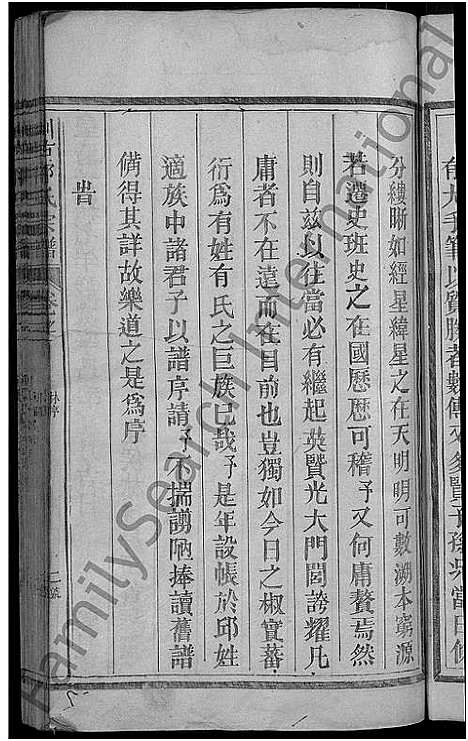 有大手筆以質勝者數傳又多賢子孫
分縷晰如經星緯星之在天明明可數溯本窮源
若遷史班史之在國歷歷可稽予又何庸贅焉然
則自茲以往當必有繼起英賢光大門閭誇耀凡
庸者不在遠而在目前也豈獨如今日之椒實蕃
衍為有姓有氏之巨族已哉予是年設帳於邱姓
適族中諸君子以譜序請予不揣譾陋捧讀舊譜
備得其詳故樂道之是為序
旹
邱氏宗譜
卷之
林序
二
FamilySearch International